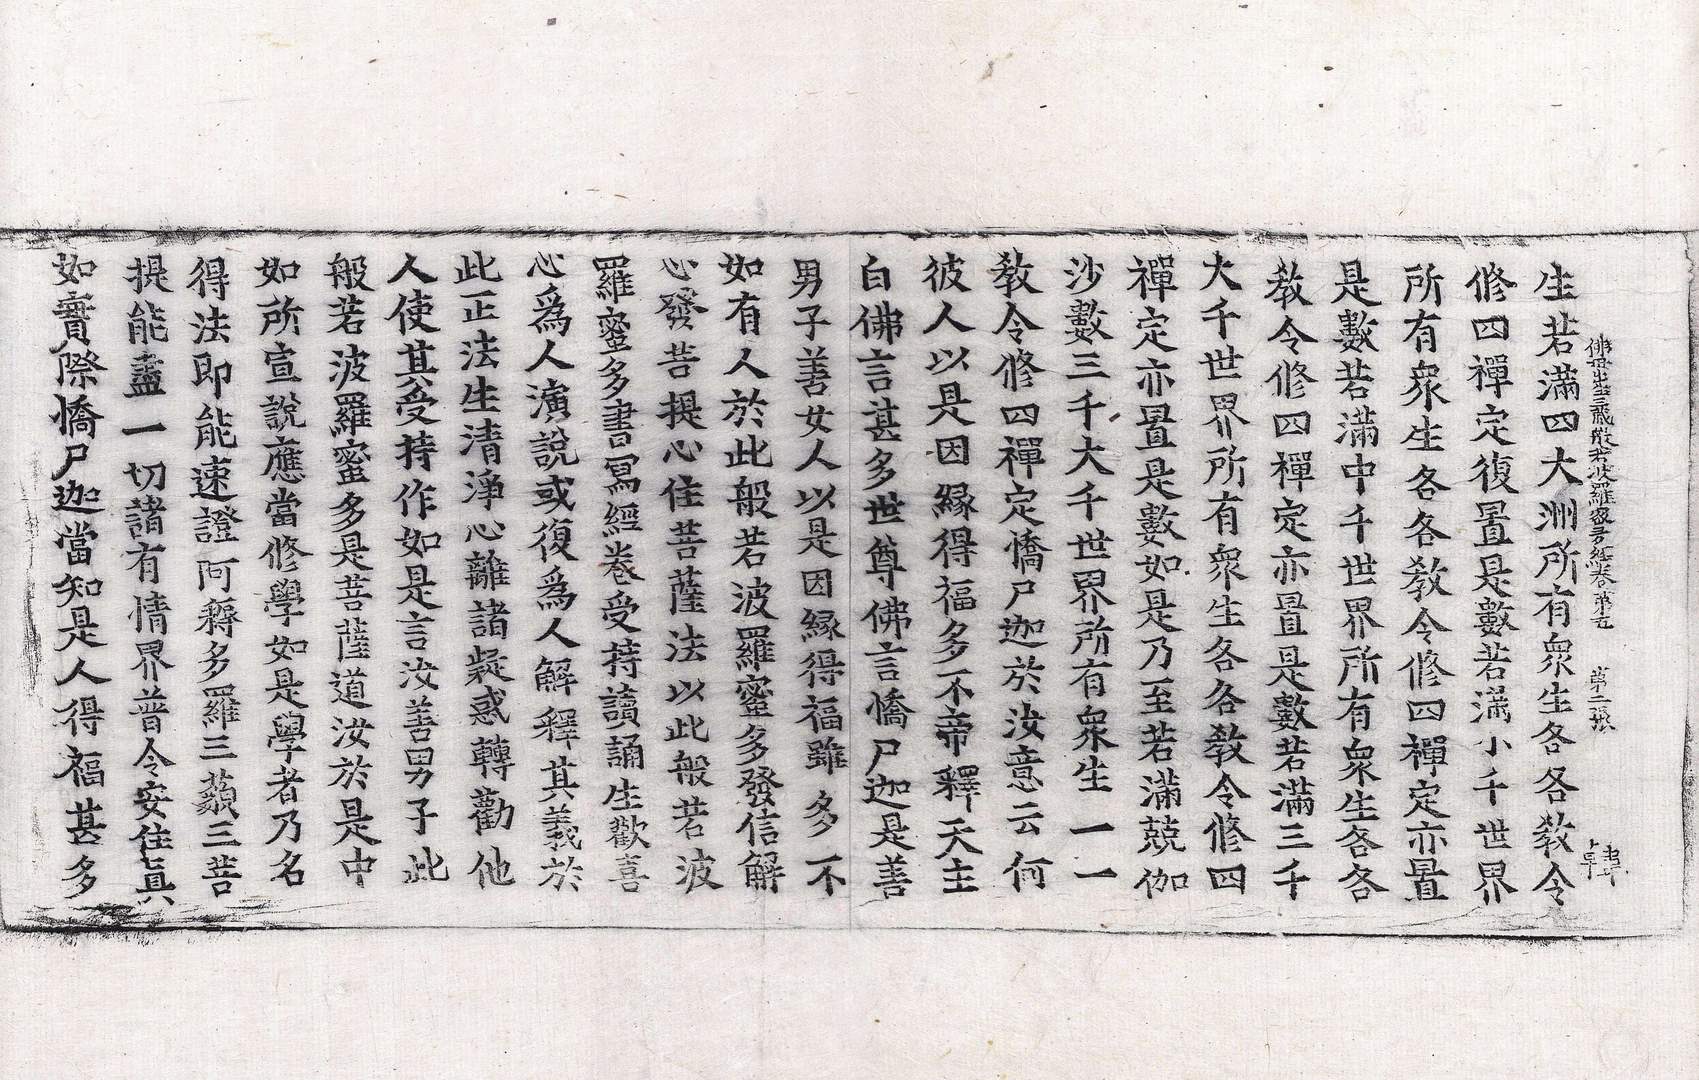 佛母出生三藏般若波羅蜜多經卷第五　第二張　韓
生若滿四大洲所有衆生各各教令
修四禪定復置是數若滿小千世界
所有衆生各各教令修四禪定亦置
是數若滿中千世界所有衆生各各
教令修四禪定亦置是數若滿三千
大千世界所有衆生各各教令修四
禪定亦置是數如是乃至若滿兢伽
沙數三千大千世界所有衆生一一
教令修四禪定憍尸迦於汝意云何
彼人以是因緣得福多不帝釋天主
白佛言甚多世尊佛言憍尸迦是善
男子善女人以是因緣得福雖多不
如有人於此般若波羅蜜多發信解
心發菩提心住菩薩法以此般若波
羅蜜多書寫經卷受持讀誦生歡喜
心爲人演說或復爲人解釋其義於
此正法生清淨心離諸疑惑轉勸他
人使其受持作如是言汝善男子此
般若波羅蜜多是菩薩道汝於是中
如所宣說應當修學如是學者乃名
得法即能速證阿耨多羅三藐三菩
提能盡一切諸有情界普令安住真
如實際憍尸迦當知是人得福甚多